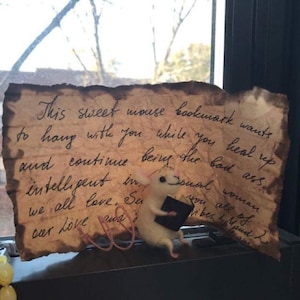 This sweet mouse bookmark wants
to hang with you while you heal up
and continue being the bad ass,
intelligent woman
we all love.
our love and